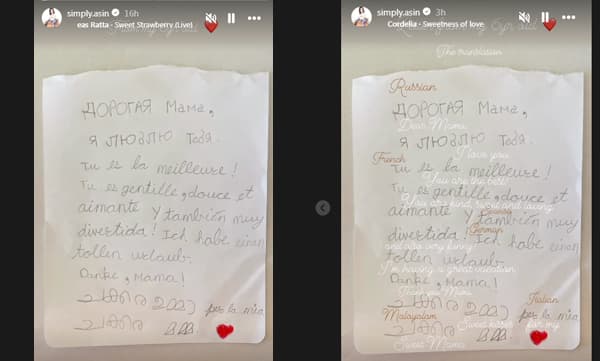 simply.asin 16h
eas Ratta · Sweet Strawberry (Live)
ДОРОГАЯ Мама,
я люблю Тебя.
Tu es la meilleure!
Tu es gentille, douce et
aimante y también muy
divertida! Ich habe einen
tollen urlaub.
Danke, Mama!
per la mia
simply.asin 3h
Cordelia · Sweetness of love
The translation
Russian
ДОРОГАЯ Мама,
Dear Mama,
я люблю Тебя.
I love you
French
Tu es la meilleure!
You are the best
Tu es gentille, douce et
You are kind, sweet and loving
aimante y también muy
Spanish
divertida! Ich habe einen
German
and also very funny!
tollen urlaub.
I'm having a great vacation
Danke, Mama!
Thank you, Mama
Italian
per la mia
Malayalam
Sweet kisses for my
Sweet Mama